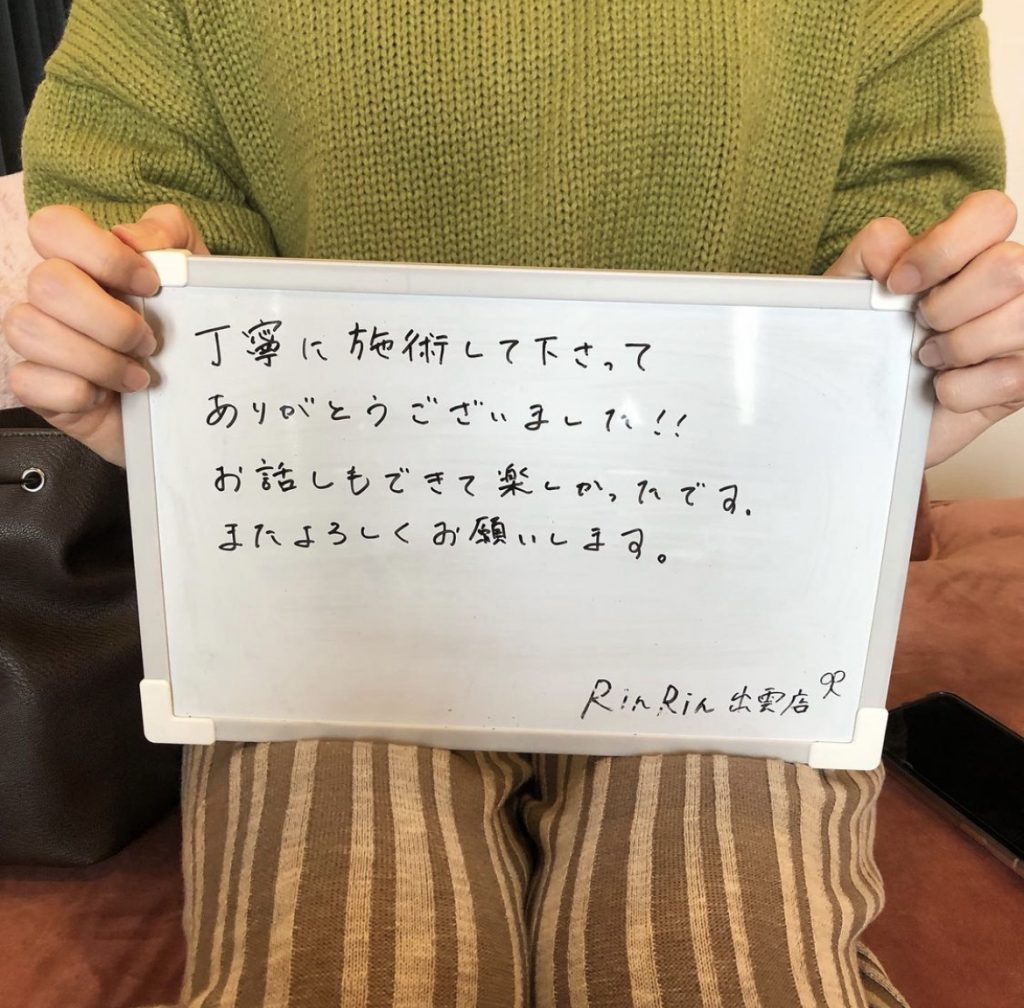 丁寧に施術して下さって
ありがとうございました!!
お話しもできて楽しかったです.
またよろしくお願いします。
RinRin 出雲店